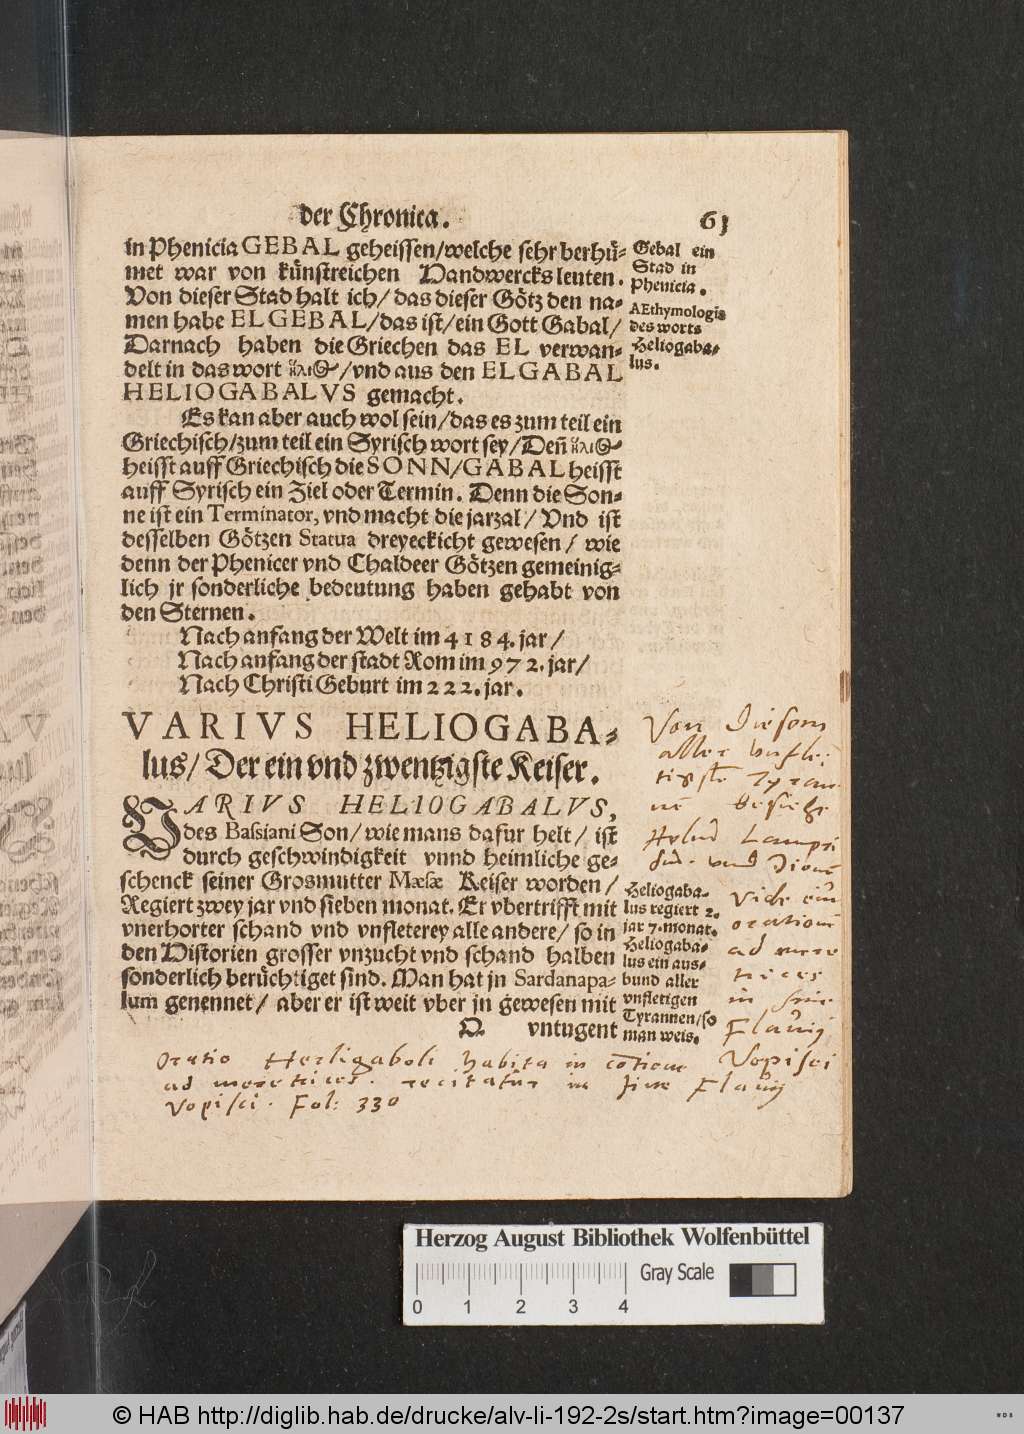 der Chronica. 61
in Phenicia GEBAL geheissen/welche sehr berhü-
met war von künstreichen Handwercksleuten.
Von dieser Stad halt ich/das dieser Götz den na-
men habe ELGEBAL/das ist/ein Gott Gabal/
Darnach haben die Griechen das EL verwan-
delt in das wort ἥλιος/vnd aus den ELGABAL
HELIOGABALVS gemacht.
Es kan aber auch wol sein/das es zum teil ein
Griechisch/zum teil ein Syrisch wort sey/Deñ ἥλιος
heisst auff Griechisch die SONN/GABAL heisst
auff Syrisch ein Ziel oder Termin. Denn die Son-
ne ist ein Terminator, vnd macht die jarzal/Vnd ist
desselben Götzen Statua dreyeckicht gewesen/wie
denn der Phenicer vnd Chaldeer Götzen gemeinig-
lich jr sonderliche bedeutung haben gehabt von
den Sternen.
Gebal ein
Stad in
Phenicia.
AEthymologia
des worts
Heliogaba-
lus.
Nach anfang der Welt im 4184. jar/
Nach anfang der stadt Rom im 972. jar/
Nach Christi Geburt im 222. jar.
VARIVS HELIOGABA-
lus/Der ein vnd zwentzigste Keiser.
VARIVS HELIOGABALVS,
des Bassiani Son/wie mans dafur helt/ist
durch geschwindigkeit vnnd heimliche ge-
schenck seiner Grosmutter Mæsæ Keiser worden/
Regiert zwey jar vnd sieben monat. Er vbertrifft mit
vnerhorter schand vnd vnfleterey alle andere/so in
den Historien grosser vnzucht vnd schand halben
sonderlich berüchtiget sind. Man hat jn Sardanapa-
lum genennet/aber er ist weit vber jn gewesen mit
Q vntugent
Heliogaba-
lus regiert 2.
jar 7. monat.
Heliogaba-
lus ein aus-
bund aller
vnfletigen
Tyrannen/so
man weis.
Von diesem
aller vnfle-
tigste Tyran
besiehe
Lampri
vnd Dionē
Vide eius
orationē
ad mere
trices
in fine
Flavij
Vopisci
Oratio Heeligaboli habita in cōtione
ad meretrices. recitatur in fine Flavij
Vopisci. Fol: 330
Herzog August Bibliothek Wolfenbüttel
Gray Scale
0 1 2 3 4
© HAB http://diglib.hab.de/drucke/alv-li-192-2s/start.htm?image=00137